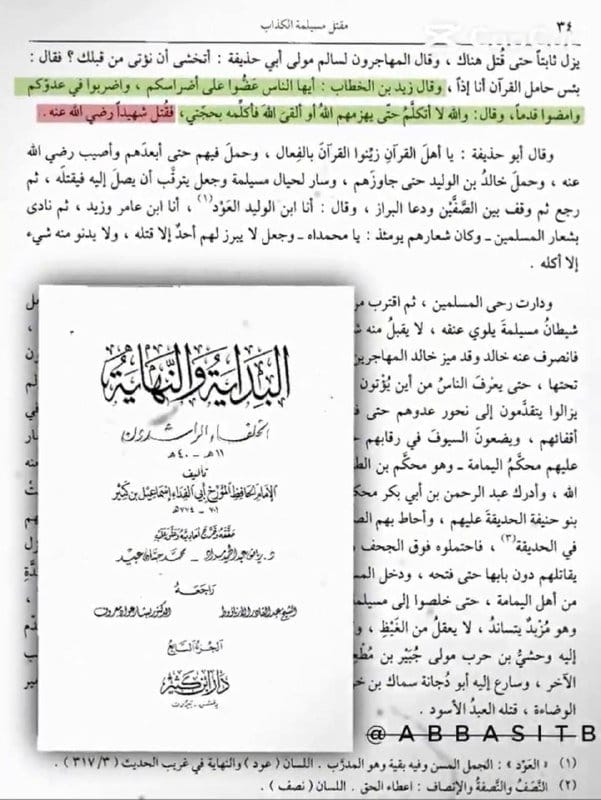 مقتل مسيلمة الكذاب
٣٤
يزل ثابتاً حتى قُتل هناك ، وقال المهاجرون لسالم مولى أبي حذيفة : أتخشى أن نؤتى من قبلك ؟ فقال :
بئس حامل القرآن أنا إذاً ، وقال زيد بن الخطاب : أيها الناس عَضُّوا على أضراسكم ، واضربوا في عدوّكم
وامضوا قدماً، وقال : والله لا أتكلَّمُ حتّى يهزمهم اللهُ أو ألقىَ اللهَ فأكلِّمه بحجَّتي، فقُتل شهيداً رضي الله عنه .
وقال أبو حذيفة : يا أهلَ القرآنِ زيِّنوا القرآنَ بالفِعال ، وحملَ فيهم حتى أبعدَهم وأصيب رضي الله
عنه ، وحملَ خالدُ بن الوليد حتى جاوزَهم ، وسار لحيال مسيلمة وجعل يترقَّب أن يصلَ إليه فيقتلَه ، ثم
رجع ثم وقف بين الصفَّيْن ودعا البراز ، وقال : أنا ابن الوليد العَوْد(١) ، أنا ابن عامر وزيد ، ثم نادى
بشعار المسلمين ـ وكان شعارهم يومئذ : يا محمداه ـ وجعل لا يبرز لهم أحدٌ إلا قتله ، ولا يدنو منه شيء
إلا أكله .
ودارت رحى المسلمين ، ثم اقترب من
شيطانُ مسيلمةَ يلوي عنقه ، لا يقبلُ منه
فانصرف عنه خالد وقد ميز خالد المهاجرين
تحتها ، حتى يعرفَ الناسُ من أين يُؤْتون
يزالوا يتقدَّمون إلى نحور عدوهم حتى
أقفائهم ، ويضعونَ السيوفَ في رقابهم
عليهم محكَّمُ اليمامة ـ وهو محكَّم بن
الله ، وأدرك عبد الرحمن بن أبي بكر
بنو حنيفة الحديقةَ عليهم ، وأحاط بهم
في الحديقة(٣) ، فاحتملوه فوق الجحف
يقاتلهم دون بابها حتى فتحه ، ودخل
من أهل اليمامة ، حتى خلصوا إلى
وهو مُزْبدٌ يتساندُ ، لا يعقل من الغَيْظِ ،
إليه وحشيُّ بن حرب مولى جُبَيْر بن
الآخر ، وسارع إليه أبو دُجانة سماك بن
الوضاءة ، قتله العبدُ الأسود .
البداية والنهاية
الخلفاء الراشدون
١١هـ - ٤٠هـ
تأليف
الإمام الحافظ المؤرخ أبي الفداء إسماعيل بن كثير
٧٠١ - ٧٧٤هـ
حققه وخرج أحاديثه وعلق عليه
د. رياض عبد الحميد مراد - محمد حسان عبيد
راجعه
الشيخ عبد القادر الأرناؤوط
الدكتور بشار عواد معروف
الجزء السابع
دار ابن كثير
دمشق - بيروت
@ABBASITB
(١) « العَوْد » : الجمل المسن وفيه بقية وهو المدرَّب . اللسان ( عود ) والنهاية في غريب الحديث ( ٣/ ٣١٧ ) .
(٢) النَّصَفُ والنَّصفةُ والإنصاف : اعطاء الحق . اللسان ( نصف ) .